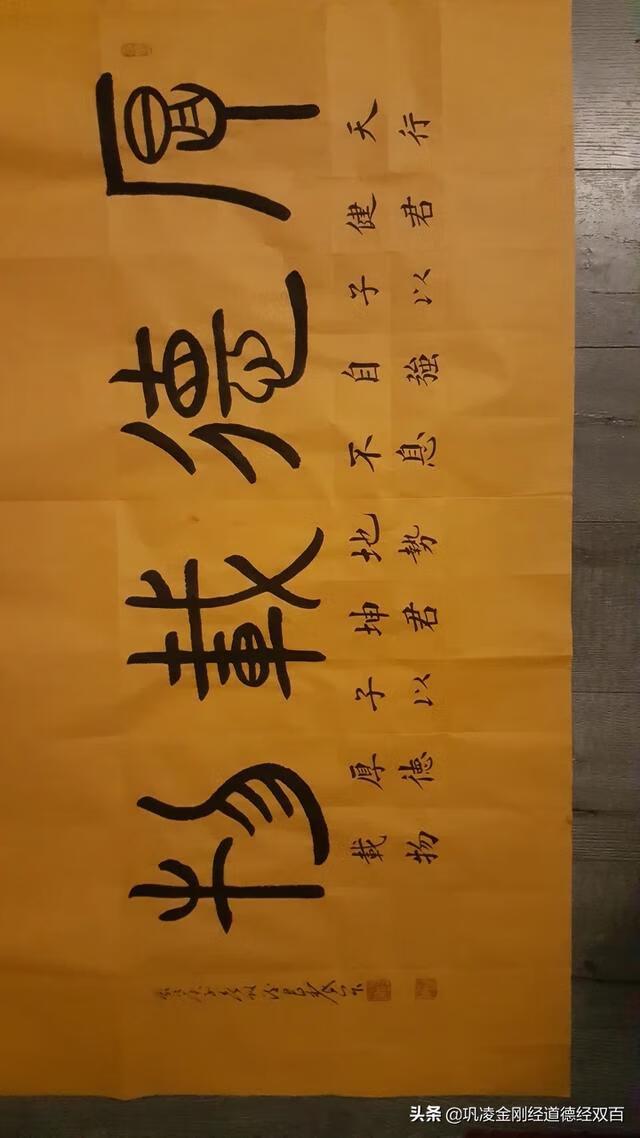 厚德載物
天行
健君
子以
自強
不息
地勢
坤君
子以
厚德
載物
头条 @巩凌金刚经道德经双百